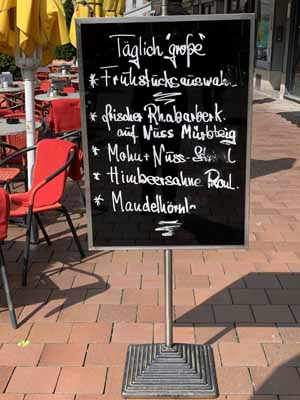 Täglich "große"
* Frühstücksauswahl
* frischer Rhabarberk.
auf Nuss Mürbteig
* Mohn + Nuss-
* Himbeersahne Roul.
* Mandelhörnl